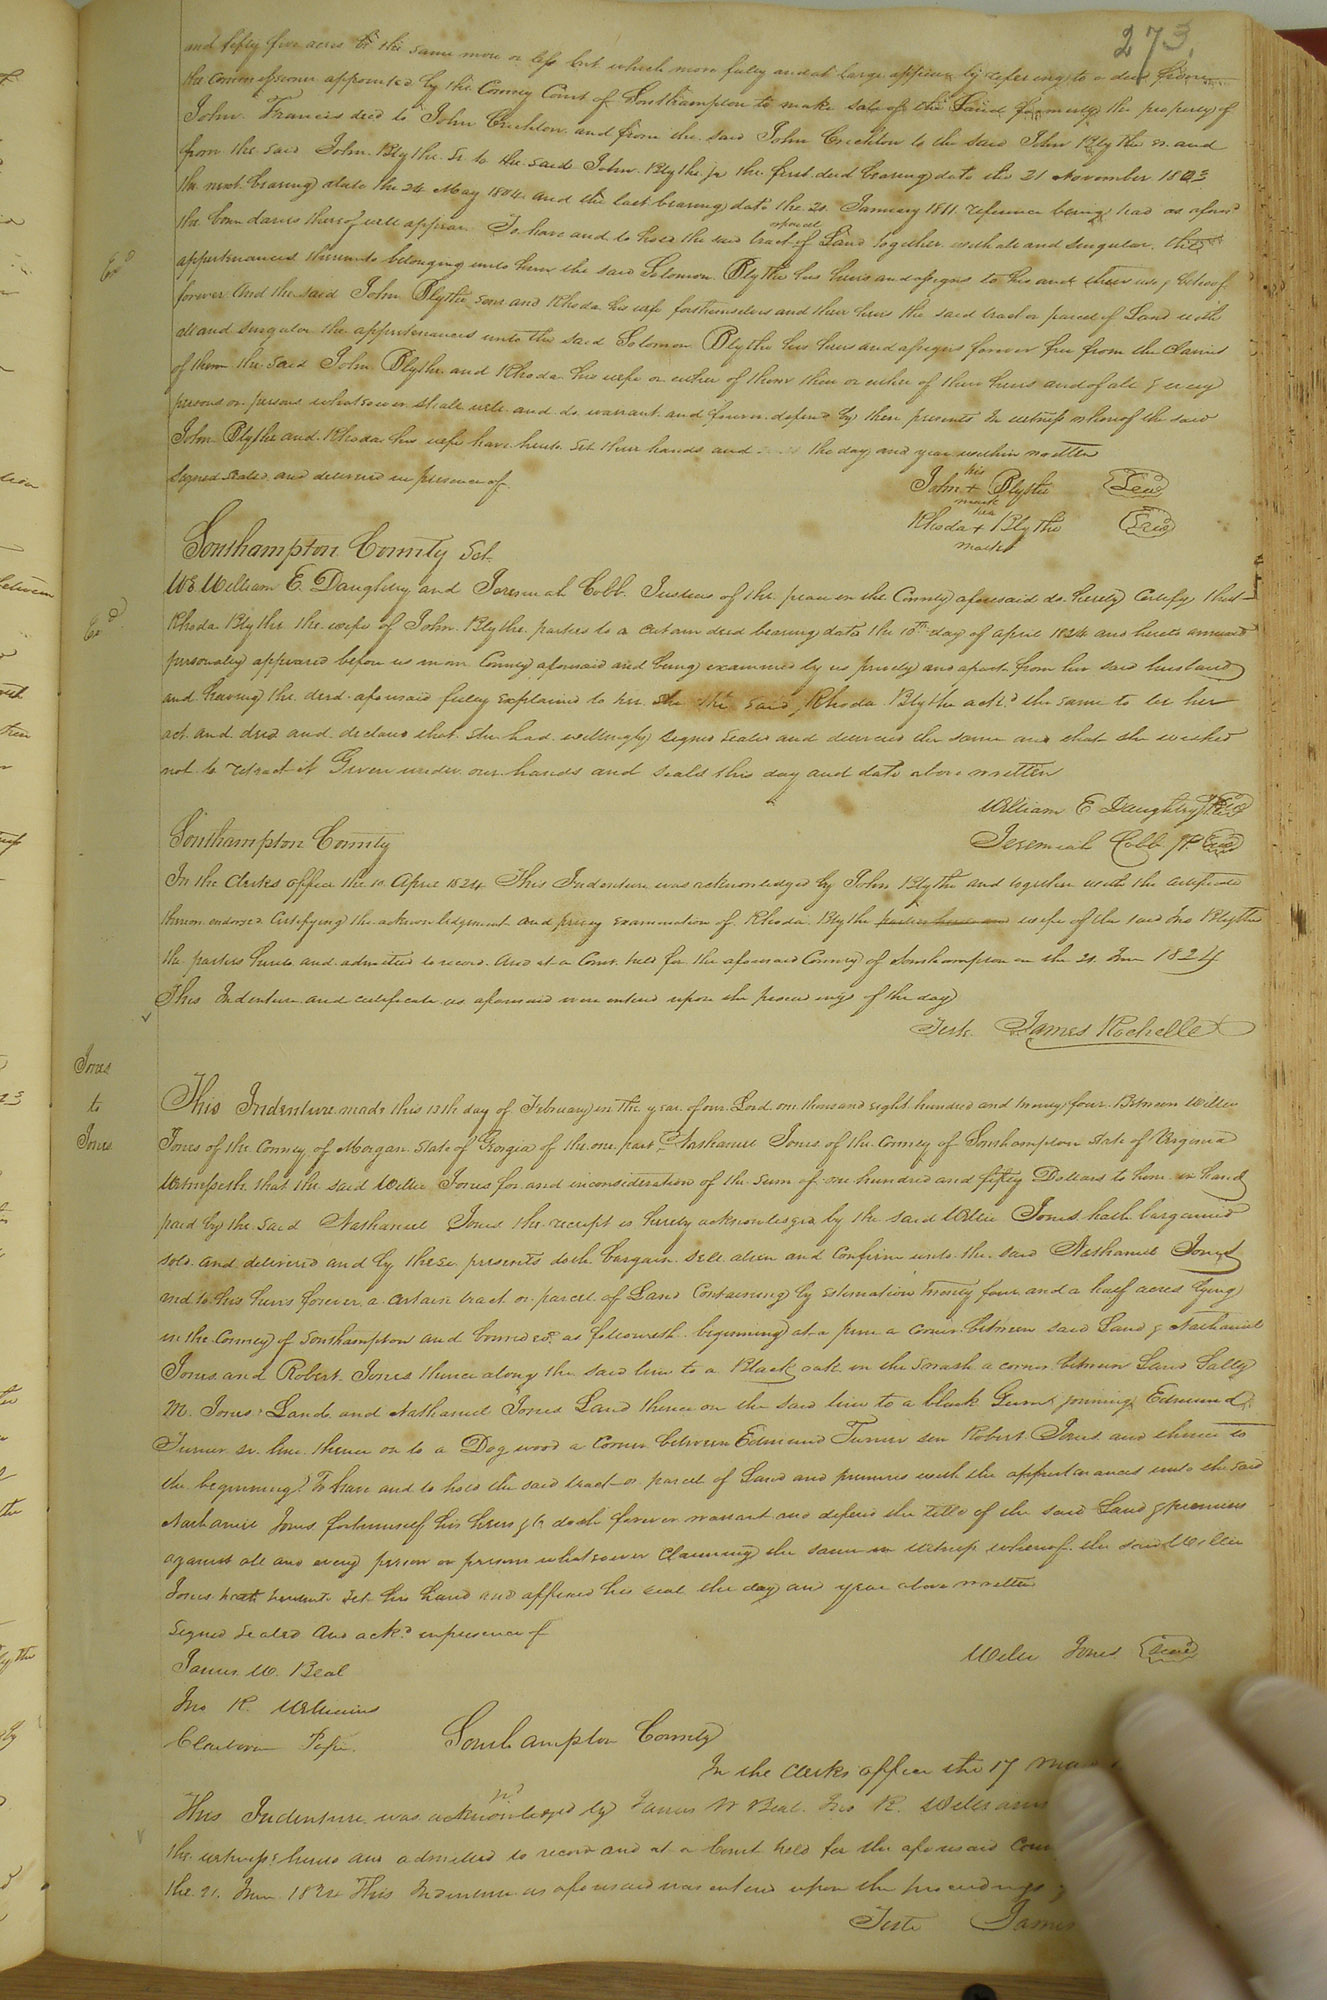 273.
and fifty five acres be the same more or less but which more fully and at large appears by refering to a deed from
the Commissioner appointed by the County Court of Southampton to make sale of the Land formerly the property of
John Francis decd to John Crichlow and from the said John Crichlow to the said John Blythe sr. and
from the said John Blythe Sr to the said John Blythe jr the first deed bearing date the 21 November 1803
the next bearing date the 24 May 1804 and the last bearing date the 21 January 1811 reference being had as afores
the boundaries thereof will appear To have and to hold the said tract or parcel of Land together with all and singular the
appurtenances thereunto belonging unto him the said Solomon Blythe his heirs and assigns to his and their use & behoof
forever And the said John Blythe and Rhoda his wife forthemselves and their heirs the said tract or parcel of Land with
all and singular the appurtenances unto the said Solomon Blythe his heirs and assigns forever free from the claims
of them the said John Blythe and Rhoda his wife or either of them their or either of their heirs and of all & every
persons or persons whatsoever shall will and do warrant and forever defend by these presents In witness whereof the said
John Blythe and Rhoda his wife have hereto set their hands and seals the day and year within written
Signed sealed and delivered in presence of
his
John + Blythe Seal
mark
her
Rhoda + Blythe Seal
mark
Exd
Southampton County Sct.
We William E. Daughtry and Jeremiah Cobb Justices of the peace in the County aforesaid do hereby certify that
Exd
Rhoda Blythe the wife of John Blythe parties to a certain deed bearing date the 10th day of April 1824 and hereto annexed
personally appeared before us in our County aforesaid and being examined by us privily and apart from her said husband
and having the deed aforesaid fully explained to her she the said Rhoda Blythe ackd the same to be her
act and deed and declared that she had willingly signed sealed and delivered the same and that she wished
not to retract it Given under our hands and seals this day and date above written
William E Daughtry Seal
Jeremiah Cobb JP. Seal
Southampton County
In the Clerks office the 10 April 1824 This Indenture was acknowledged by John Blythe and together with the certificate
thereon endorsed Certifying the acknowledgment and privy examination of Rhoda Blythe wife of the said Jno Blythe
the parties hereto and admitted to record And at a Court held for the aforesaid County of Southampton on the 21. June 1824
This Indenture and certificate as aforesaid were entered upon the proceedings of the day
Teste. James Rochelle
Jones
to
Jones
This Indenture made this 12th day of February in the year of our Lord one thousand eight hundred and twenty four Between Willie
Jones of the County of Morgan State of Georgia of the one part & Nathaniel Jones of the County of Southampton State of Virginia
Witnesseth that the said Willie Jones for and in consideration of the sum of one hundred and fifty Dollars to him in hand
paid by the said Nathaniel Jones the receipt is hereby acknowledged by the said Willie Jones hath bargained
sold and delivered and by these presents doth bargain sell alien and confirm unto the said Nathaniel Jones
and to his heirs forever a certain tract or parcel of Land Containing by estimation twenty four and a half acres lying
in the County of Southampton and bounded as followeth beginning at a pine a corner between said Land & Nathaniel
Jones and Robert Jones thence along the said line to a Black oak in the Smash a corner between Land Sally
M. Jones Land and Nathaniel Jones Land thence on the said line to a black Gum joining Edmund
Turner sr. line thence on to a Dogwood a corner between Edmund Turner sen Robert Jones and thence to
the beginning To have and to hold the said tract or parcel of Land and premises with the appurtenances unto the said
Nathaniel Jones for himself his heirs &c doth forever warrant and defend the title of the said Land & premises
against all and every person or persons whatsoever claiming the same in witness whereof the said Willie
Jones hath hereunto set his hand and affixed his seal the day and year above written
Signed sealed and ackd in presence of
Willie Jones Seal
James W. Beal
Jno R. Williams
Claiborn Pope.
Southampton County
In the Clerks office the 17
This Indenture was acknowledged by James W Beal. Jno R. Williams
the witnesses hereto and admitted to record and at a Court held for the aforesaid
the 21. June 1824 This Indenture as aforesaid was entered upon the proceedings
Teste James